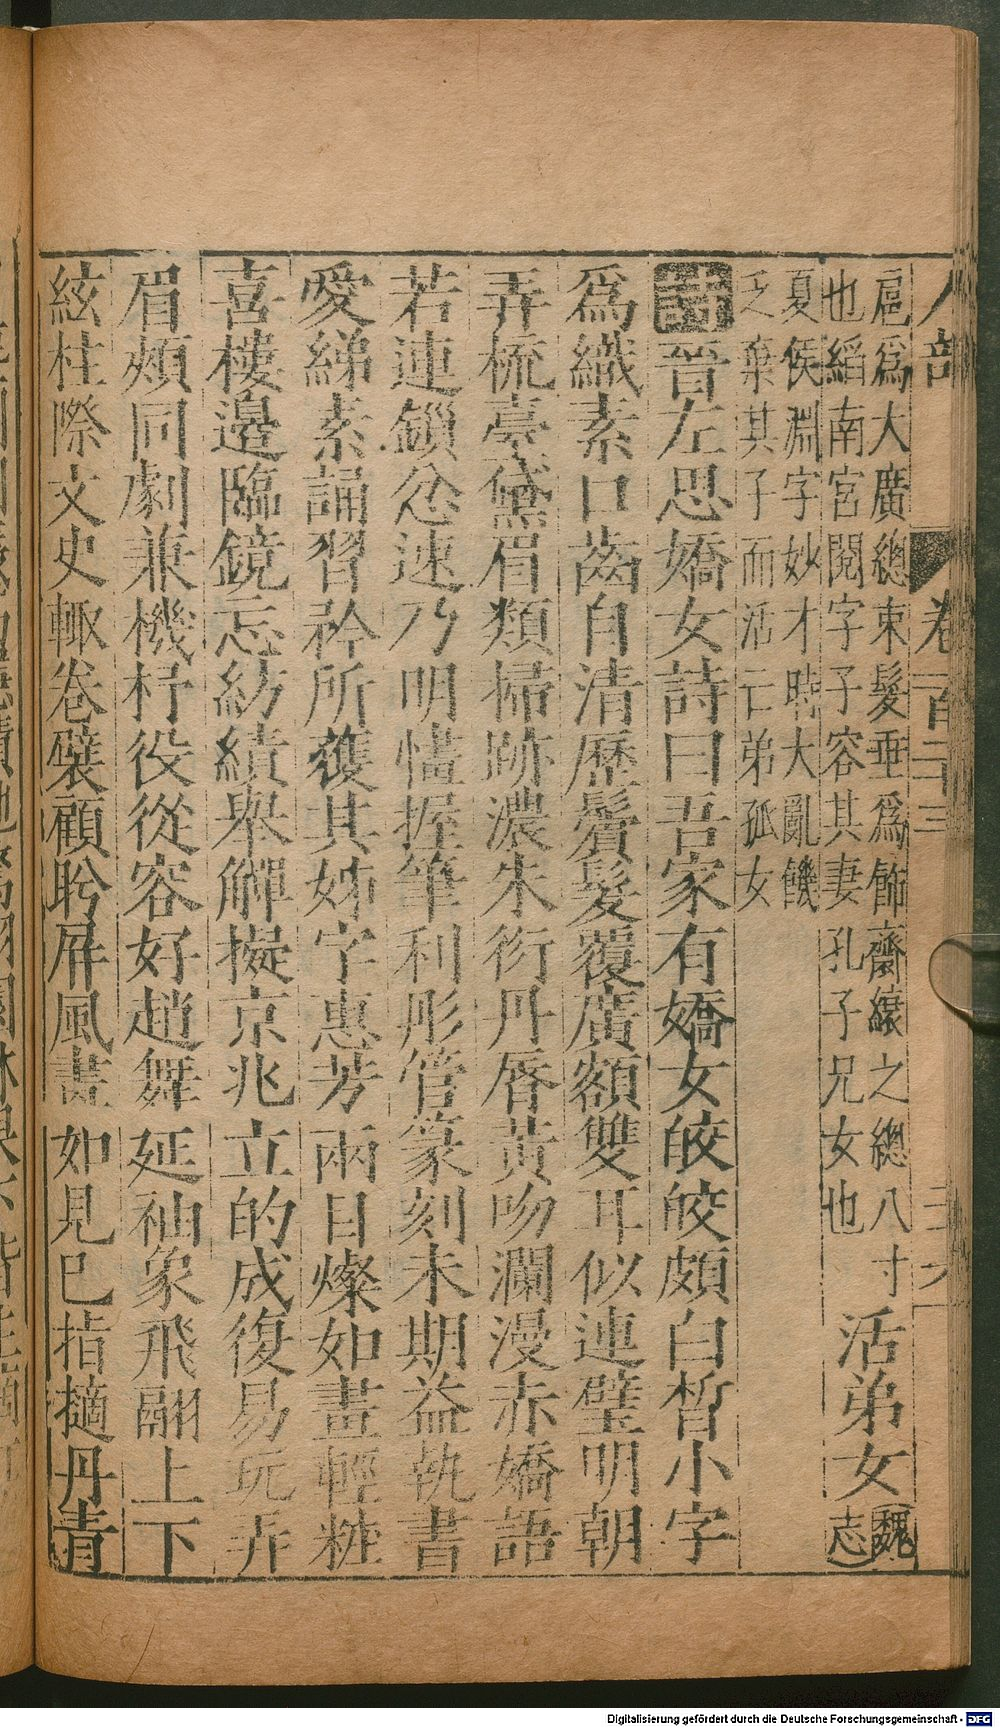 人部 卷一百二十三
扈爲大廣總束髮垂爲飾齋縗之總八寸 活弟女 魏
也縚南宮閱字子容其妻孔子兄女也 志
夏侯淵字妙才時大亂饑
乏棄其子而活亡弟孤女
詩晉左思嬌女詩曰吾家有嬌女皎皎頗白皙小字
爲織素口齒自清歷鬢髮覆廣額雙耳似連璧明朝
弄梳臺黛眉類掃跡濃朱衍丹脣黃吻瀾漫赤嬌語
若連鎖忿速乃明㦎握筆利彤管篆刻未期益執書
愛綈素誦習矜所獲其姊字惠芳兩目燦如畫輕粧
喜樓邊臨鏡忘紡績舉觶擬京兆立的成復易玩弄
眉頰同劇兼機杼役從容好趙舞延袖象飛翮上下
絃柱際文史輙卷襞顧眄屏風畫如見已指擿丹青
Digitalisierung gefördert durch die Deutsche Forschungsgemeinschaft - DFG